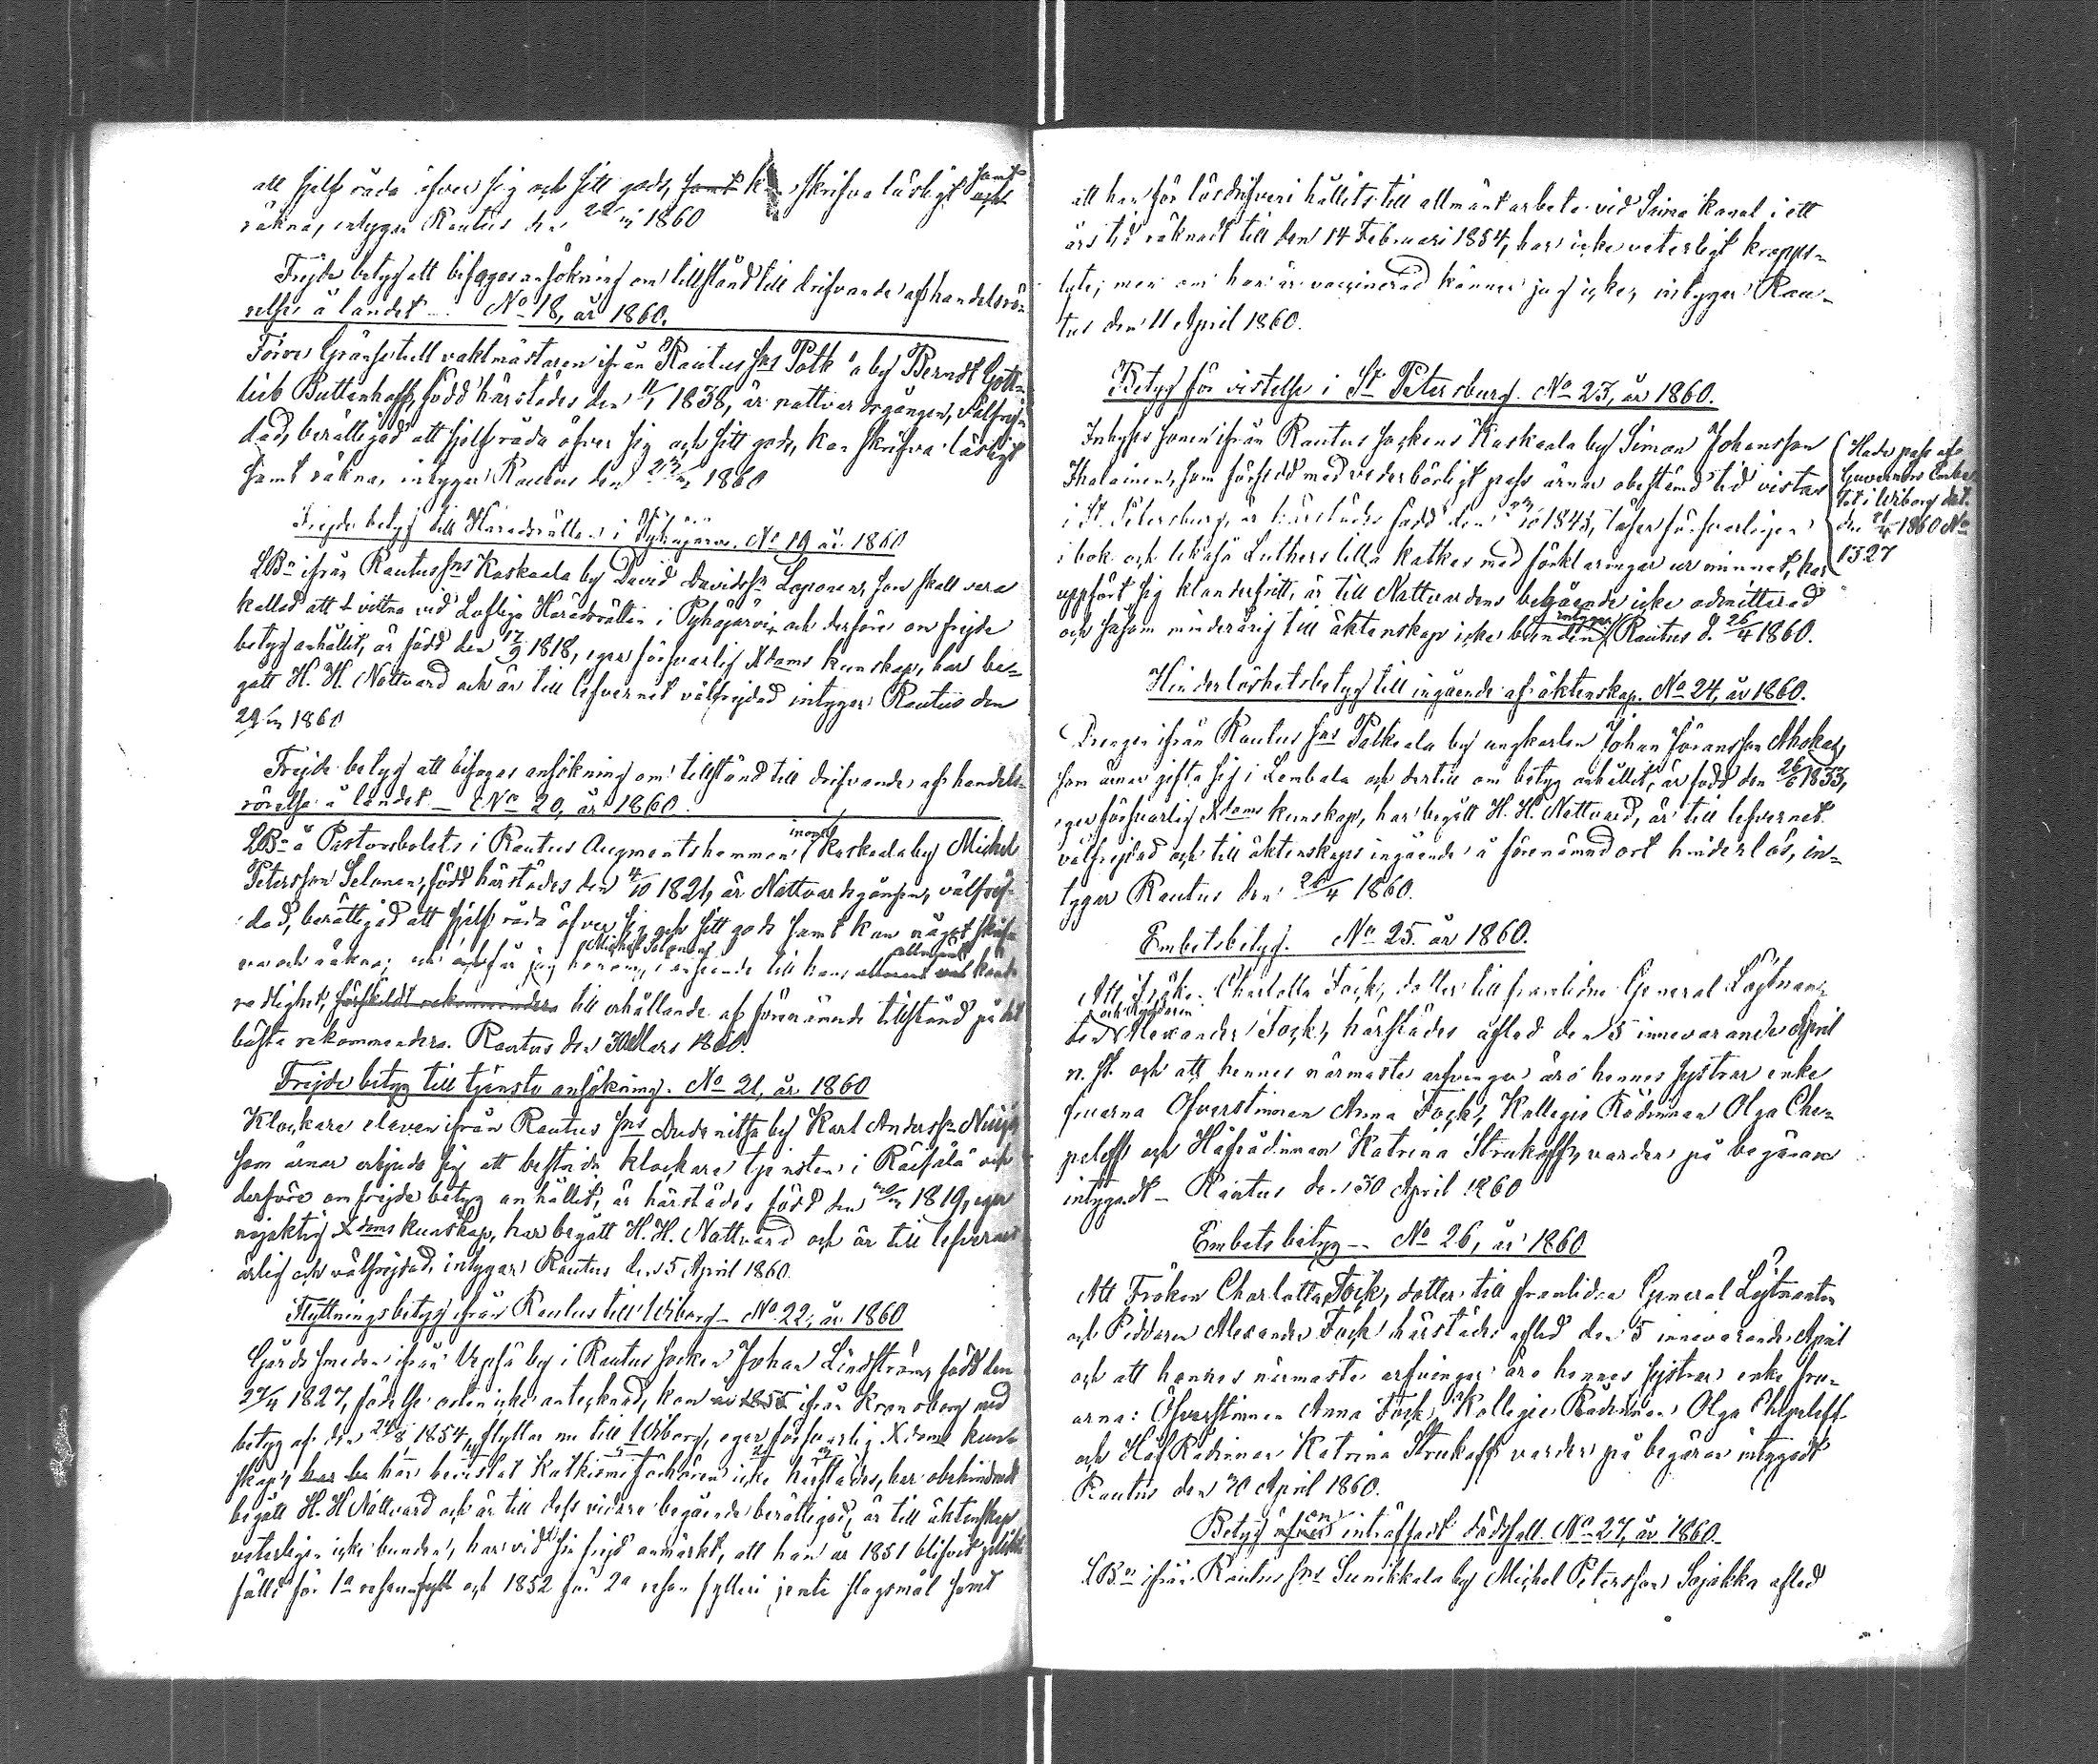 att sjelf råda öfver sig och sitt gods, samt k skrifva läsligt samt och
räkna, intygar Rautus den 22/III 1860
Frejde betyg att bifogas ansökning om tillstånd till drifvande af handelsrö-
relse å landet. No 18, år 1860.
Förre Gränsetull vaktmästaren ifrån Rautus Sns Palkeala by Berndt Gott-
lieb Buttenhoff, född härstädes den 11/1 1838, är nattvardsgången, välfrej-
dad, berättigad att sjelf råda öfver sig och sitt gods, kan skrifva läsligt
samt räkna, intygar Rautus den 1860
Frejde betyg till Häradsrätten i Pyhäjärvi. No 19 år 1860
LBn ifrån Rautus Sns Kaskaala by David Davidssn Loponen, som skall vara
kallad att vittna vid Lofliga Häradsrätten i Pyhäjärvi och derföre om frejde
betyg anhållit, är född den 17/9 1818, eger försvarlig Xdoms kunskap, har be-
gått H. H. Nattvard och är till lefvernet välfrejdad intygar Rautus den
29/III 1860
Frejde betyg att bifogas ansökning om tillstånd till drifvande af handels-
rörelse å landet – No 20, år 1860.
LBn å Pastorsbolets i Rautus Augmentshemman inom Kaskaala by Michel
Petersson Selonen, född härstädes den 4/10 1821, är Nattvardsgången, välfrej-
dad, berättigad att sjelf råda öfver sig och sitt gods samt kan något skrif-
va och räkna; och får jag honom, Michel Selonen, i anseende till hans allmänt kända
redlighet, särskildt rekommendera till erhållande af förenämnde tillstånd på det
bästa rekommendera. Rautus den 30 Mars 1860.
Frejde betyg till tjenste ansökning. No 21, år 1860
Klockare eleven ifrån Rautus Sns by Karl Anderssn
som ärnar erbjuda sig att bestrida klockare tjensten i Räisälä och
derföre om frejde betyg anhållit, är härstädes född den 1819, eger
nöjaktig Xdoms kunskap, har begått H. H. Nattvard och är till lefvernet
ärlig och välfrejdad, intygar Rautus den 5 April 1860.
Flyttningsbetyg ifrån Rautus till Wiborg – No 22, år 1860
Gårds smeden ifrån by i Rautus socken Johan Lindström, född den
27/4 1827, födelse orten icke antecknad, kom år 1855 ifrån Kronoborg med
betyg af den 24/8 1854, flyttar nu till Wiborg, eger försvarlig Xdoms kun-
skap, har be har bevistat Katkismi förhören icke härstädes, har obehindradt
begått H. H. Nattvard och är till dess vidare begående berättigad, är till äktenskap
veterligen icke bunden, har vid sin frejd anmärkt, att han år 1851 blifvit
fälld för 1a resan och 1852 för 2a resan fylleri jemte slagsmål samt
att han för lösdrifveri hållits till allmänt arbete vid Saima kanal i ett
års tid räknadt till den 14 Februari 1854, har icke veterligt kropps-
lyte; men om han är vaccinerad känner jag icke, intygar Rau-
tus den 11 April 1860.
Betyg för vistelse i St Petersburg. No 23, år 1860.
Inhyses sonen ifrån Rautus sockens Kaskaala by Simon Johansson
som försedd med vederbörligt pass ärnar obestämd tid vistas
i St. Petersburg, är härstädes född den 1843, läser försvarligen
i bok och likaså Luthers lilla katkes med förklaringar ur minnet, har
uppfört sig klanderfritt, är till Nattvardens begående icke admitterad
och såsom minderårig till äktenskap icke bunden, intygar Rautus d. 26/4 1860.
Hade pass af
Guvernörs Embe-
tet i Wiborg dat.
den 1860 No
1327
Hinderlöshetsbetyg till ingående af äktenskap. No 24, år 1860.
Drengen ifrån Rautus Sns Palkeala by ungkarlen Johan Göransson Ahokas,
som ärnar gifta sig i Lembala och dertill om betyg anhållit, är född den 26/6 1833,
eger försvarlig Xdoms kunskap, har begått H. H. Nattvard, är till lefvernet
välfrejdad och till äktenskaps ingående å förenämnd ort hinderlös, in-
tygar Rautus den 1860.
Embetsbetyg. No 25. år 1860.
Att Fröken Charlotta Fock, dotter till framlidne General Löjtnan-
ten och Riddaren Alexander Fock, härstädes aflled den 5 innevarande April
n. st. och att hennes närmaste arfvingar äro hennes systrar enke
fruarna Öfverstinnan Anna Fock, Kollegii Rådinnan Olga Che-
peleff och Hofrådinnan Katrina Strukoff, varder på begäran
intygadt – Rautus den 30 April 1860
Embets betyg – No 26, år 1860
Att Fröken Charlotta Fock, dotter till framlidne General Löjtnanten
och Riddaren Alexander Fock härstädes afled den 5 innevarande April
och att hennes närmaste arfvingar äro hennes systrar enke fru-
arna: Öfverstinnan Anna Fock, Kollegii Rådinnan Olga Chepeleff
och Hof Rådinnan Katrina Strukoff varder på begäran intygadt
Rautus den 30 April 1860.
Betyg öfver om inträffadt dödsfall. No 27, år 1860.
LBn ifrån Rautus Sns Sunikkala by Michel Petersson Sajakka afled